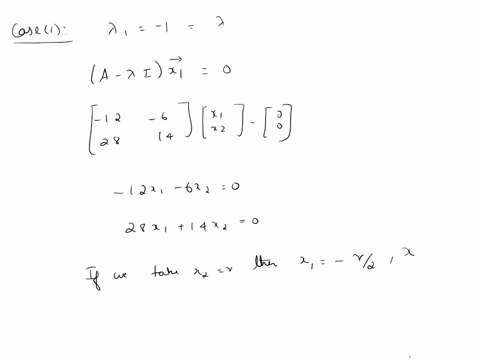 Case(1): λ₁ = -1 = λ
(A - λ I) x₁⃗ = 0
[-12 -6; 28 14] [x₁; x₂] - [0; 0]
-12x₁ - 6x₂ = 0
28x₁ + 14x₂ = 0
If we take x₂ = r then x₁ = - r/2 , x